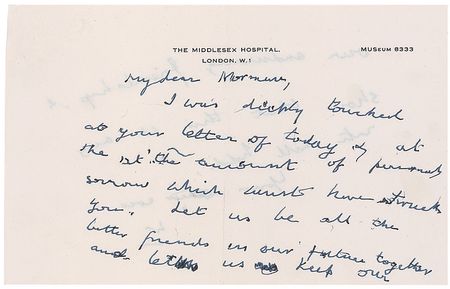 THE MIDDLESEX HOSPITAL,
LONDON, W.1
MUSEUM 8333
My dear Norman,
I was deeply touched
at your letter of today & at
the amount of personal
sorrow which must have struck
you. Let us be all the
better friends in our future together
and let us keep our